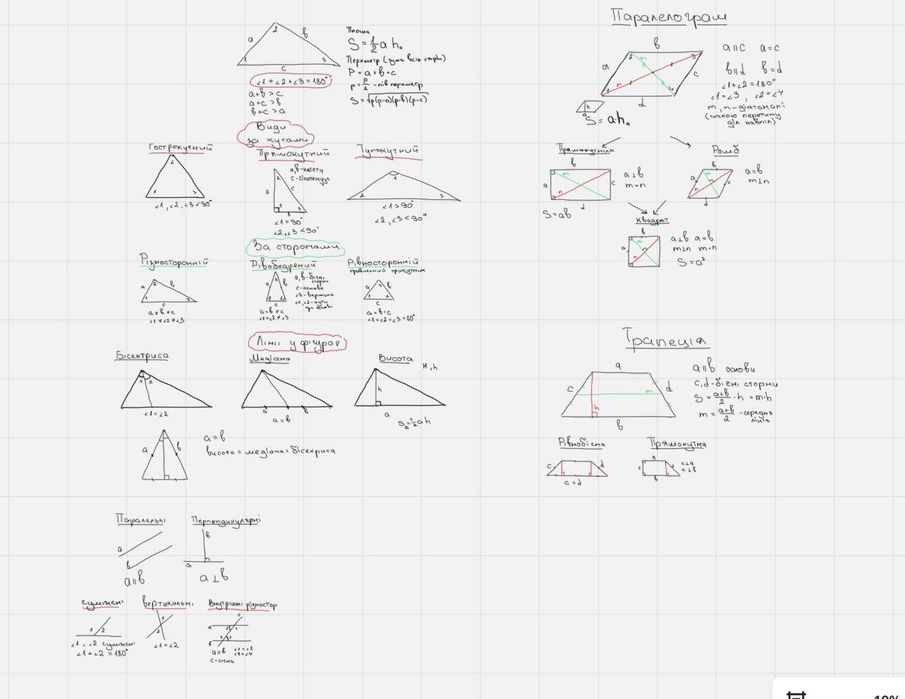 a
b
c
1
2
3
Площа
S = ½ a hₐ
Периметр (сума всіх сторін)
P = a+b+c
p = P/2 - пів периметр
S = √p(p-a)(p-b)(p-c)
∠1+∠2+∠3=180°
a+b>c
a+c>b
b+c>a
Види
за кутами
Гострокутний
∠1,∠2,∠3<90°
Прямокутний
a,b-катети
c-гіпотенуза
∠1=90°
∠2,∠3<90°
Тупокутний
∠1>90°
∠2,∠3<90°
За сторонами
Різносторонній
a≠b≠c
∠1≠∠2≠∠3
Рівнобедрений
a,b-бічні
сторони
c-основа
∠3-вершина
a=b≠c
∠1=∠2≠∠3
Рівносторонній
правильний трикутник
a=b=c
∠1=∠2=∠3=60°
Лінії у фігурах
Бісектриса
∠1=∠2
Медіана
a=b
Висота
H,h
h
a
S=½ah
a=b
висота=медіана=бісектриса
Паралельні
a
b
a∥b
Перпендикулярні
b
a
a⊥b
суміжні
∠1,∠2 суміжні
∠1+∠2=180°
вертикальні
∠1=∠2
Внутрішні різностор
a=b
c-січна
Паралелограм
a∥c a=c
b∥d b=d
∠1+∠2=180°
∠1=∠3, ∠2=∠4
m,n-діагоналі
(точкою перетину
діл навпіл)
S=ahₐ
Прямокутник
a⊥b
m=n
S=ab
Ромб
a=b
m⊥n
Квадрат
a⊥b a=b
m⊥n m=n
S=a²
Трапеція
a∥b основи
c,d-бічні сторни
S = a+b/2 · h = m·h
m = a+b/2 -середня
лінія
Рівнобічна
c=d
Прямокутна
c⊥a
c⊥b